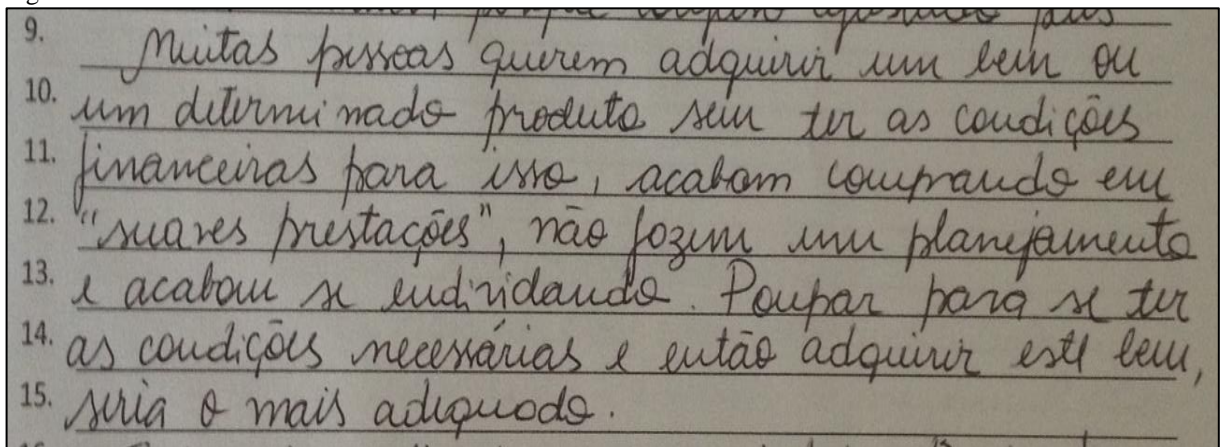 9. Muitas pessoas querem adquirir um bem ou
10. um determinado produto sem ter as condições
11. financeiras para isso, acabam comprando em
12. "suaves prestações", não fazem um planejamento
13. e acabam se endividando. Poupar para se ter
14. as condições necessárias e então adquirir este bem,
15. seria o mais adequado.